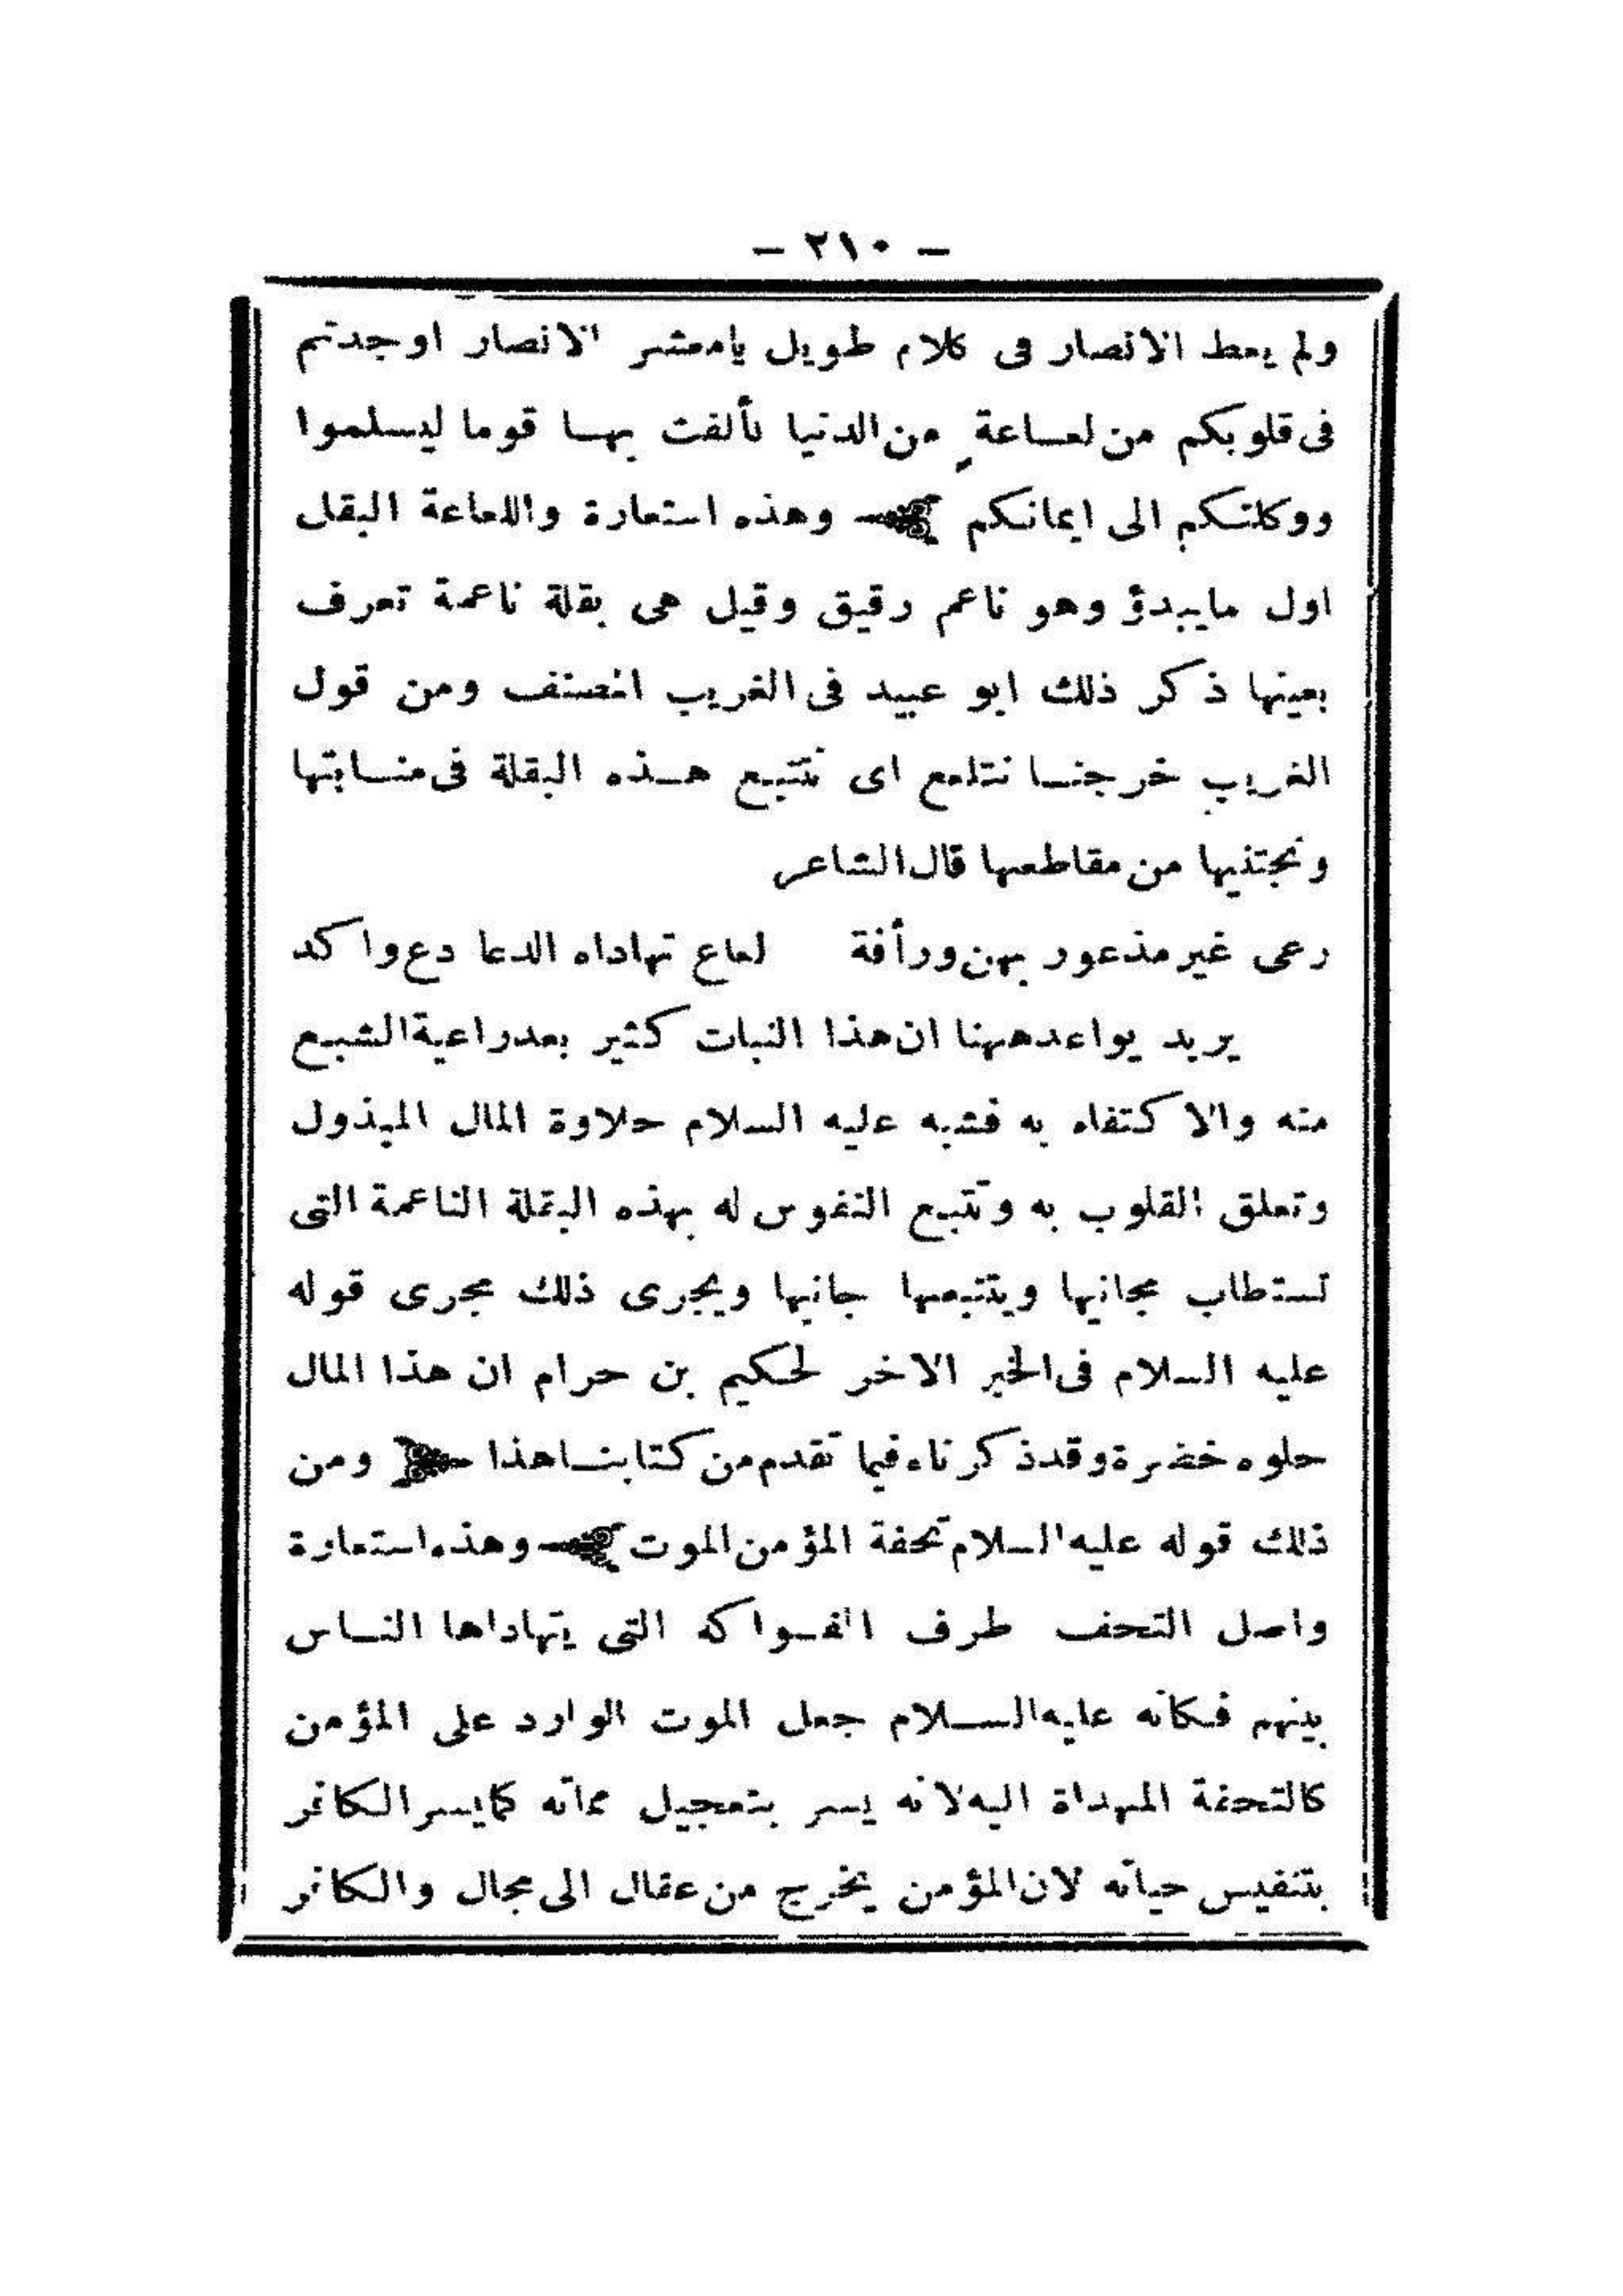 — ٢١٠ —
ولم يعط الانصار فى كلام طويل يامعشر الانصار اوجدتم
فى قلوبكم من لعاعةٍ من الدنيا تألفت بها قوما ليسلموا
ووكلتكم الى ايمانكم وهذه استعارة واللعاعة البقل
اول مايبدؤ وهو ناعم رقيق وقيل هى بقلة ناعمة تعرف
بعينها ذكر ذلك ابو عبيد فى الغريب المصنف ومن قول
الغريب خرجنا نتلعع اى نتتبع هذه البقلة فى منابتها
ونجتذيها من مقاطعها قال الشاعر
رعى غير مذعور بهن ورأفة لعاع تهاداه الدعا دع واكد
يريد يواعدههنا ان هذا النبات كثير بعدراعية الشبع
منه والاكتفاء به فشبه عليه السلام حلاوة المال المبذول
وتعلق القلوب به وتتبع النفوس له بهذه البقلة الناعمة التى
تستطاب مجانيها ويتتبعها جانيها ويجرى ذلك مجرى قوله
عليه السلام فى الخبر الاخر لحكيم بن حرام ان هذا المال
حلوه خضرة وقدذكرناه فيما تقدم من كتابنا هذا ومن
ذلك قوله عليه السلام تحفة المؤمن الموت وهذه استعارة
واصل التحف طرف الفواكه التى يتهاداها الناس
بينهم فكانه عليه السلام جعل الموت الوارد على المؤمن
كالتحفة المهداة اليه لانه يسر بتعجيل مماته كمايسر الكافر
بتنفيس حياته لان المؤمن يخرج من عقال الى مجال والكافر